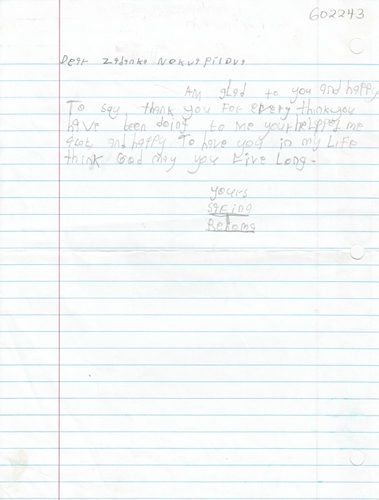 602243
Dear Zdenka Nekvapilova
Am glad to you and happy
To say thank you For every think you
have been doing to me your helpped me
alot and happy To have you in my Life
think God may you Live Long.
yours
Rehema